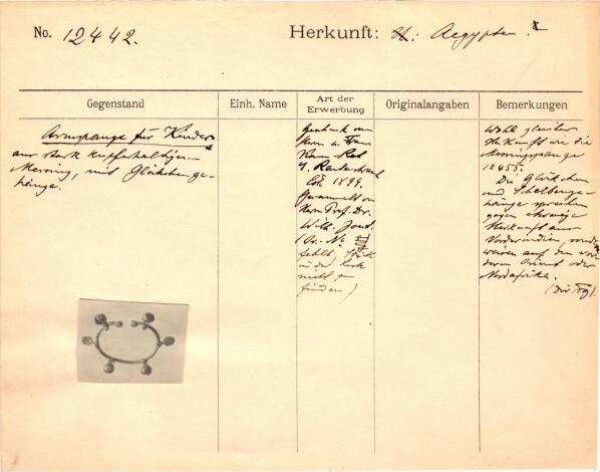 No. 12442.
Herkunft: Aegypten ?
Gegenstand
Einh. Name
Art der Erwerbung
Originalangaben
Bemerkungen
Armspange für Kinder
aus stark kupferhaltigem
Messing, mit Glöckchenge-
hänge.
Geschenk von
Herrn u. Frau
1899.
Gesammelt von
Herrn Prof. Dr.
Wilh. Joest.
(Or. No
fehlt,
in der
nicht zu
finden)
Wohl gleicher
Herkunft wie die
Messingspange
12455.
Die Glöckchen
und Schellenge-
hänge sprechen
gegen etwaige
Herkunft aus
Vorderindien,
weisen auf den vor-
deren Orient oder
Nordafrika.